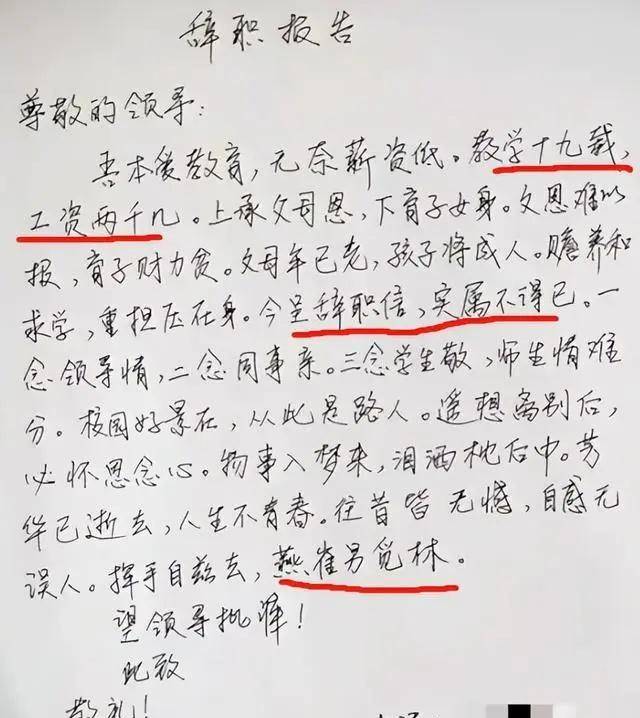 辞职报告
尊敬的领导:
吾本爱教育,无奈薪资低。教学十九载,
工资两千几。上承父母恩,下育子女身。父恩难以
报,育子财力贫。父母年已老,孩子将成人。赡养和
求学,重担压在身。今呈辞职信,实属不得已。一
念领导情,二念同事亲。三念学生敬,师生情难
分。校园好景在,从此是路人。遥想离别后,
必怀思念心。物事入梦来,泪洒枕后中。芳
华已逝去,人生不青春。往昔皆无憾,自感无
误人。挥手自兹去,燕雀另觅林。
望领导批准!
此致
敬礼!